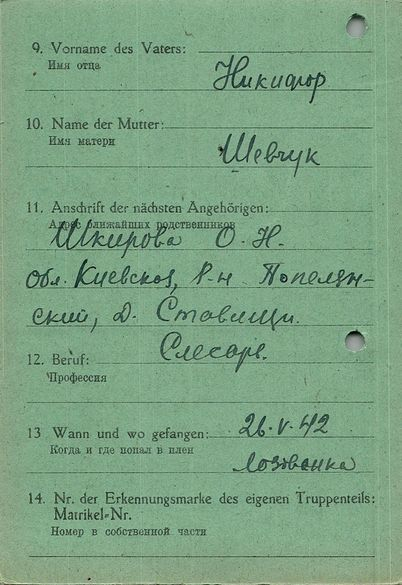 9. Vorname des Vaters:
Имя отца
Никифор
10. Name der Mutter:
Имя матери
Шевчук
11. Anschrift der nächsten Angehörigen:
Адрес ближайших родственников
Шкирова О. Н.
обл. Киевская, р-н Попелян-
ский, д. Ставищи.
12. Beruf:
Слесарь.
Профессия
13 Wann und wo gefangen:
26.V.42
Когда и где попал в плен
Лозовенка
14. Nr. der Erkennungsmarke des eigenen Truppenteils:
Matrikel-Nr.
Номер в собственной части